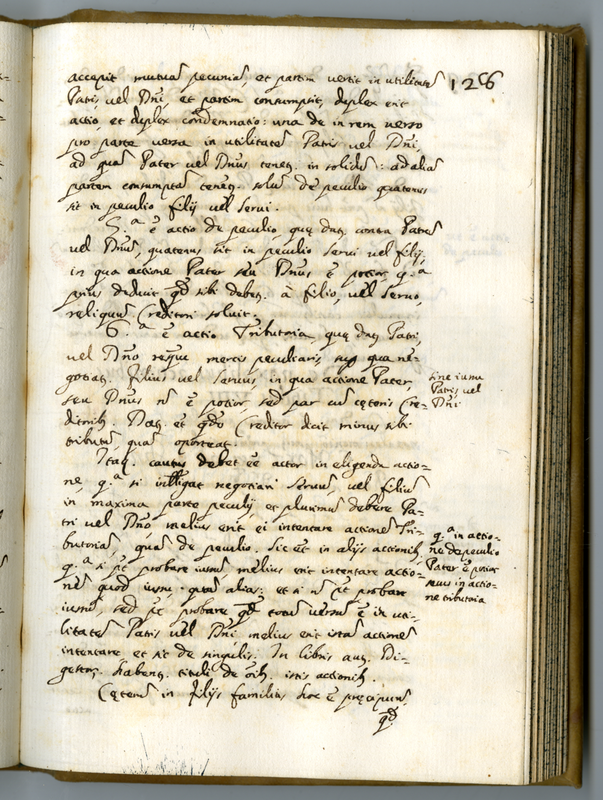 126
accepit mutuã pecuniã, et partim vertit in utilitatẽ
Patris vel Dñi, et partim consumpsit, duplex erit
actio, et duplex condemnatio: una de in rem verso
pro parte versa in utilitatẽ Patris vel Dñi,
ad quã Pater vel Dñus tenet. in solidũ: ad aliã
partem consumptã tenet. solũ de peculio quatenus
sit in peculio filij vel servi.
5.ª ẽ actio de peculio, quę dat. contra Patrẽ
vel Dñum, quatenus sit in peculio servi vel filij,
in qua actione Pater seu Dñus ẽ potior, q.ª
prius deducit qd sibi debet. à filio, vel servo,
reliquũ Creditori solvit.
6.ª ẽ actio Tributoria, quę dat. Patri,
vel Dño mercis peculiaris, qua ne-
gotiat. filius vel servus, in qua actione Pater,
seu Dñus nõ ẽ potior, sed par cũ cęteris Cre-
ditorib. Dat. et qdo Creditor dicit minus sibi
tributũ, quã oporteat.
Itaq. cautus debet ẽe actor in eligenda actio-
ne, q.ª si negotiari servus, vel filius
in maxima parte peculij et plurimũ debere Pa-
tri vel Dño melius erit ei intentare actionẽ Tri-
butoriã, quã de peculio. Sic ẽt in alijs actionib.
q.ª si põt probare iussũ, melius erit intentare actio-
nẽ quod iussu: quã alias: et si nõ põt probare
iussũ, sed põt probare qd totũ versũ ẽ in uti-
litatẽ Patris vel Dñi melius erit istã actionẽ
intentare et sic de singulis. In libris aut. Di-
gestor. habent. tituli de oib. istis actionib.
Cęterũ in filijs familias hoc ẽ pręcipuũ,
qd
sine iussu
Patris vel
Dñi
q.ª in actio-
ne de peculio
Pater ẽ potior
secus in actio-
ne tributoria